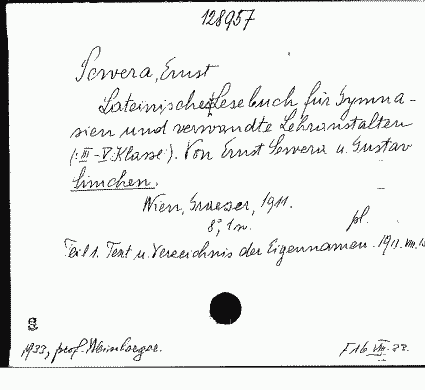 128957
Sewera, Ernst
Lateinisches Lesebuch für Gymna-
sien und verwandte Lehranstalten
(: III - V. Klasse :). Von Ernst Sewera u. Gustav
Simchen.
Wien, Graeser, 1911.
8°, 1 n. pl.
Teil 1. Text u. Verzeichnis der Eigennamen. 1911. VIII,
S
1933, prof. Weinberger. F16 VIII. 33.